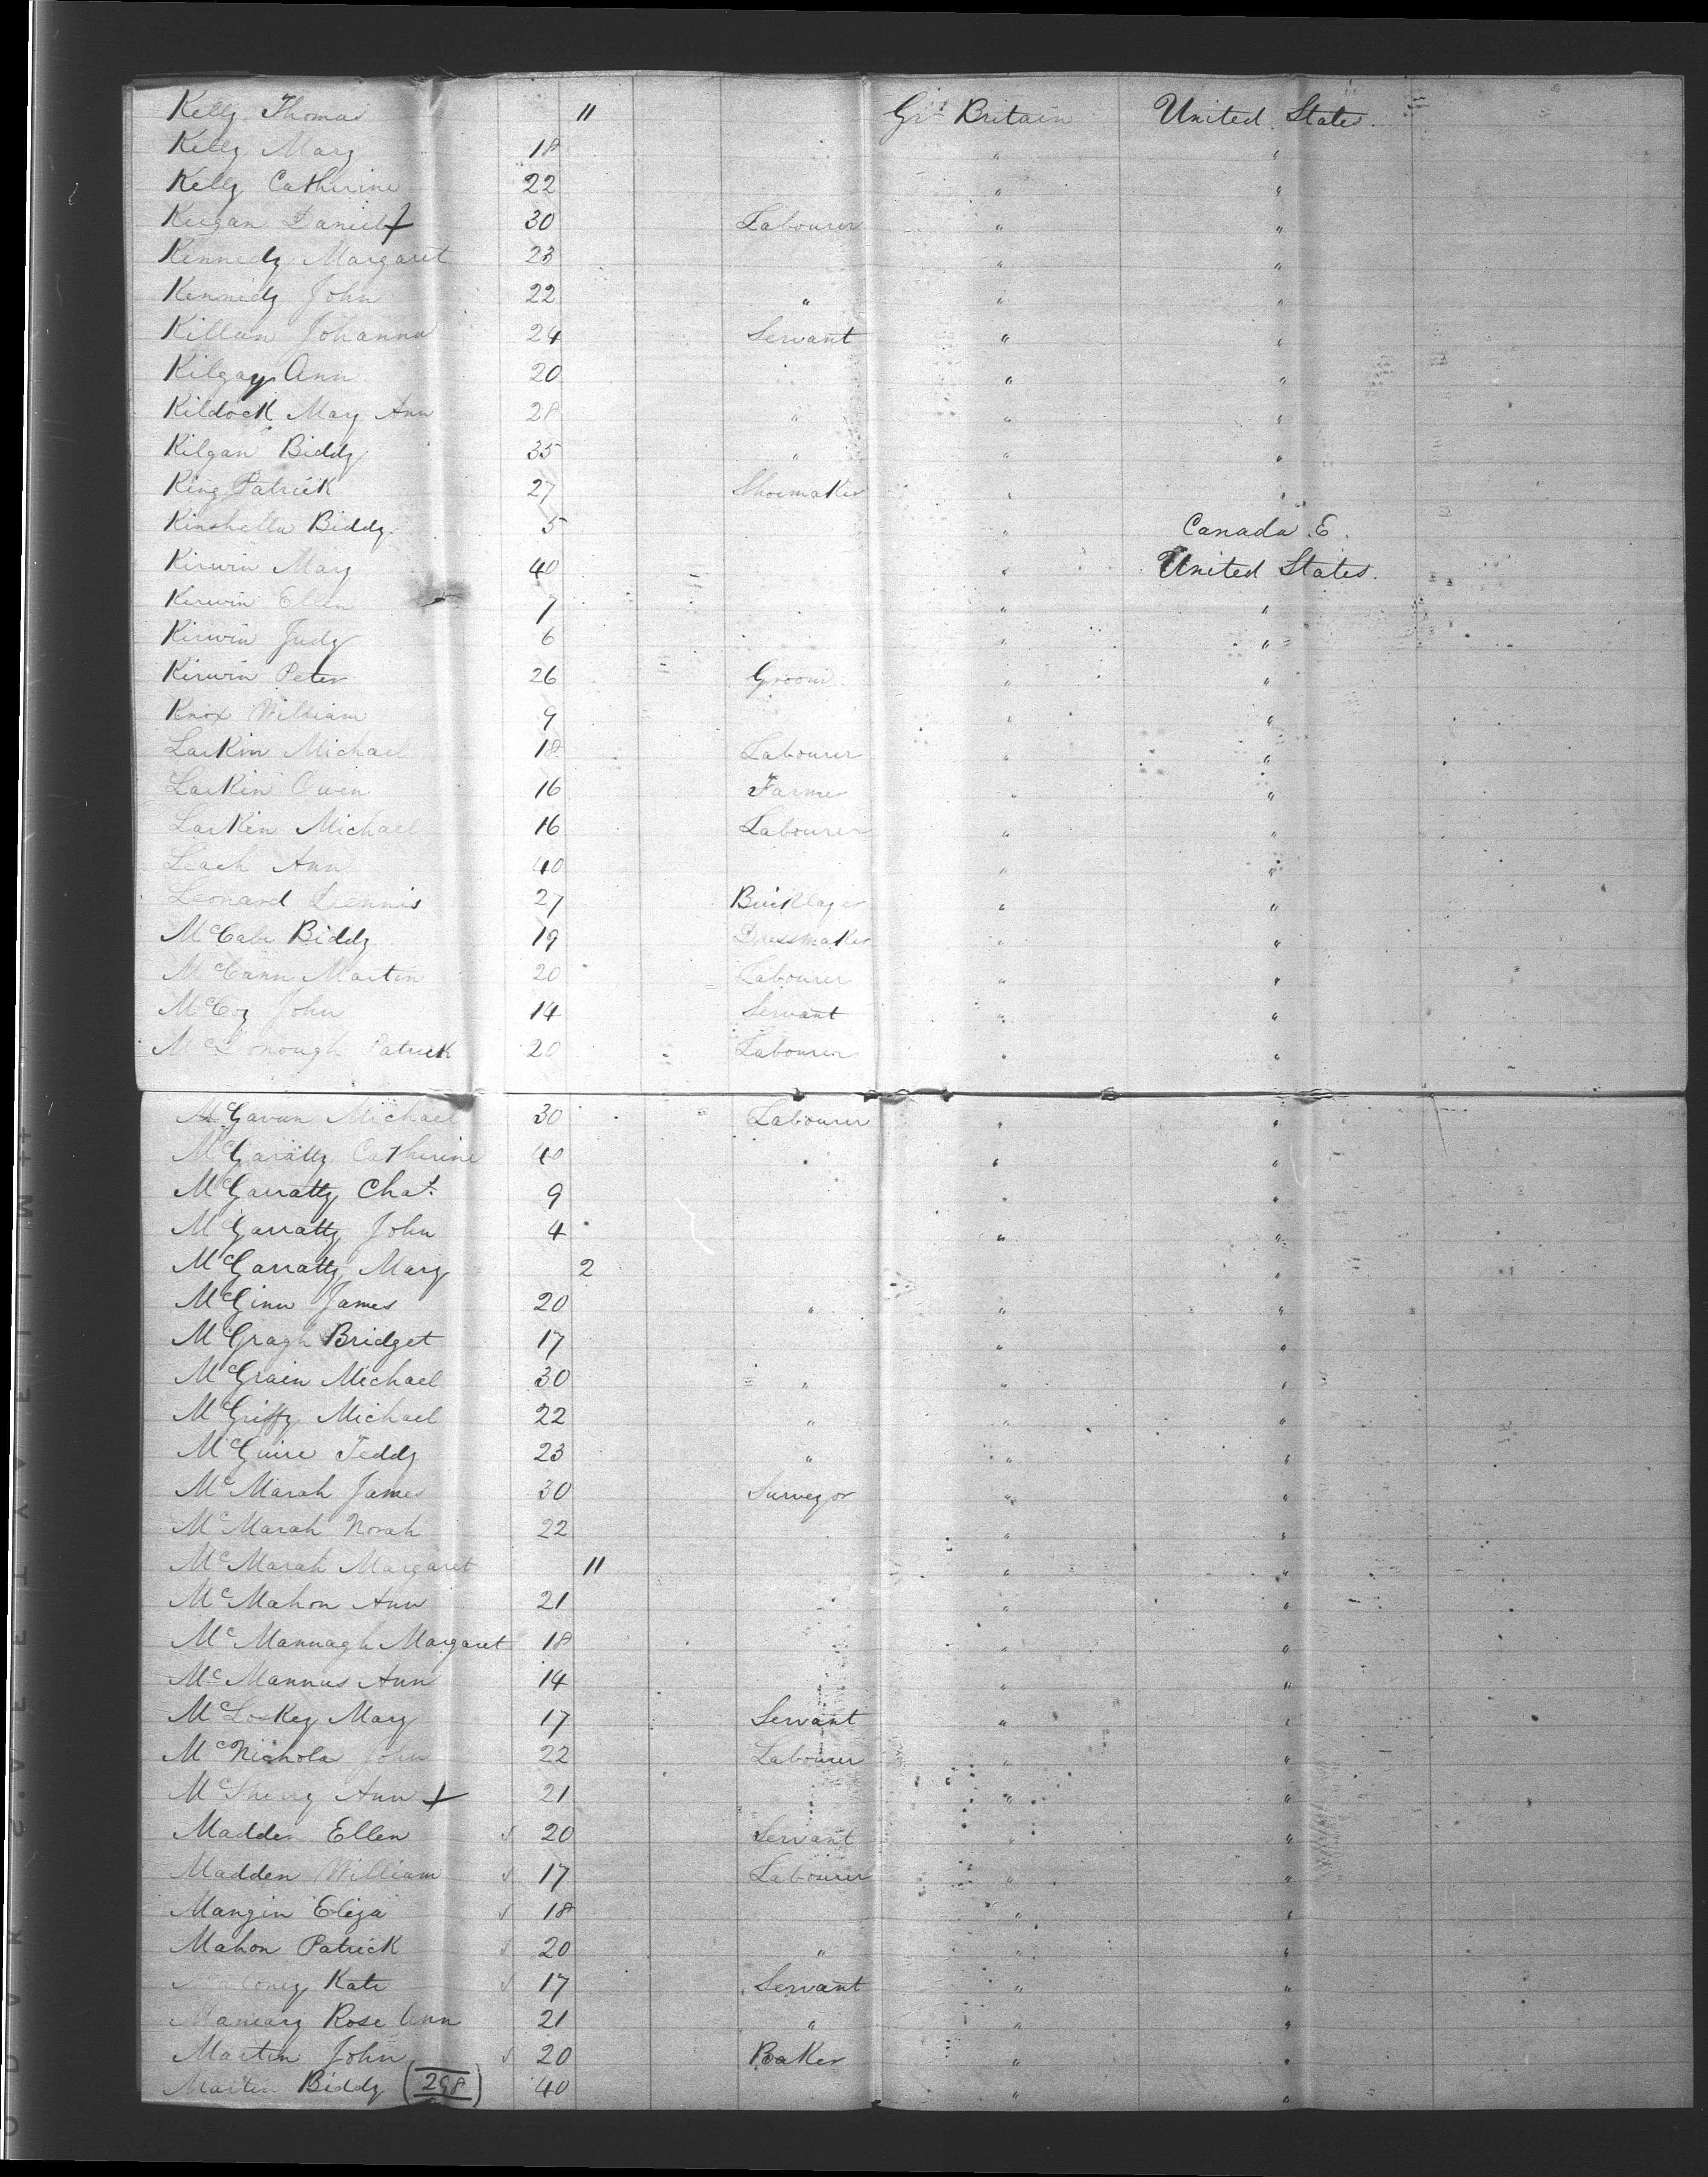 Kelly Thomas 11 Gt Britain United States.
Kelly Mary 18 " "
Kelly Catherine 22 " "
Keegan Daniel 30 Labourer " "
Kennedy Margaret 23 " "
Kennedy John 22 " " "
Killian Johanna 24 Servant " "
Kilgay Ann 20 " "
Kildock Mary Ann 28 " " "
Kilgan Biddy 35 " " "
King Patrick 27 Shoemaker " "
Kinshella Biddy 5 " Canada E.
Kirwin Mary 40 " United States.
Kirwin Ellen 7 " "
Kirwin Judy 6 " "
Kirwin Peter 26 Groom " "
Knox William 9 " "
Larkin Michael 18 Labourer " "
Larkin Owen 16 Farmer " "
Larkin Michael 16 Labourer " "
Leach Ann 40 " "
Leonard Dennis 27 Bricklayer " "
McCabe Biddy 19 Dressmaker " "
McCann Martin 20 Labourer " "
McCoy John 14 Servant " "
McDonough Patrick 20 Labourer " "
McGavan Michael 30 Labourer " "
McGaratty Catherine 40 " "
McGarratty Chas. 9 " "
McGarratty John 4 " "
McGarratty Mary 2 "
McGinn James 20 " " "
McGragh Bridget 17 " "
McGrain Michael 30 " " "
McGriffy Michael 22 " " "
McGuire Teddy 23 " " "
McMarah James 30 Surveyor " "
McMarah Norah 22 " "
McMarah Margaret 11 " "
McMahon Ann 21 " "
McMannagh Margaret 18 " "
McMannus Ann 14 " "
McLoskey Mary 17 Servant " "
McNichola John 22 Labourer " "
McSherry Ann 21 " "
Madden Ellen 20 Servant " "
Madden William 17 Labourer " "
Mangin Eliza 18 " "
Mahon Patrick 20 " " "
Maloney Kate 17 Servant " "
Rose Ann 21 " " "
Martin John 20 Baker " "
Martin Biddy (298) 40 " "